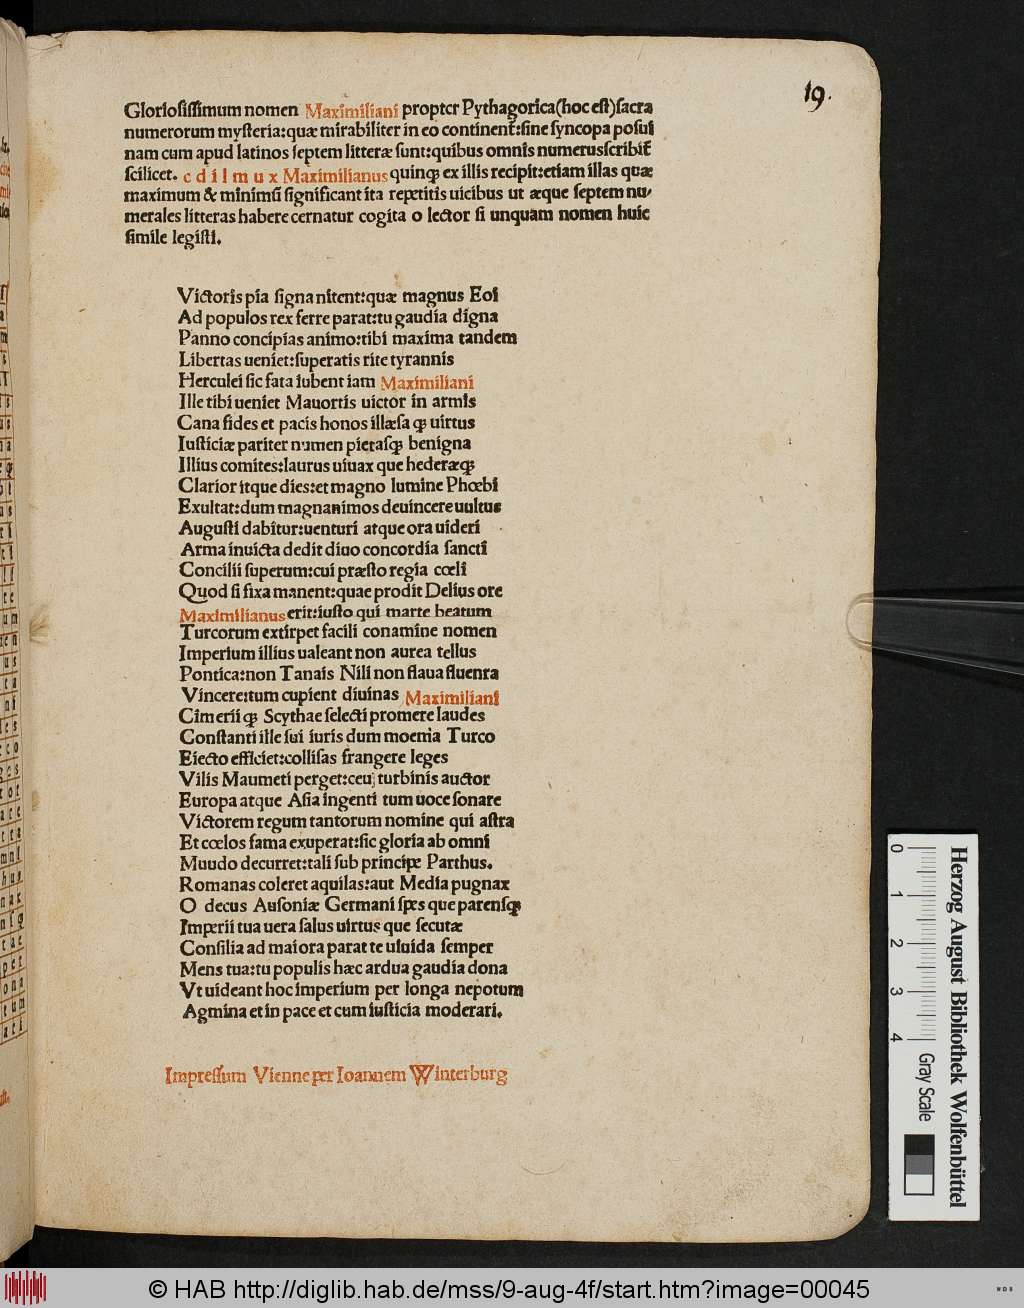 19.
Gloriosissimum nomen Maximiliani propter Pythagorica(hoc est)sacra
numerorum mysteria:quæ mirabiliter in eo continent̃:sine syncopa posui
nam cum apud latinos septem litteræ sunt:quibus omnis numerusscribit̃
scilicet. c d i l m u x Maximilianus quinqꝫ ex illis recipit:etiam illas quæ
maximum & minimũ significant ita repetitis uicibus ut æque septem nu-
merales litteras habere cernatur cogita o lector si unquam nomen huic
simile legisti.
Victoris pia signa nitent:quæ magnus Eoi
Ad populos rex ferre parat:tu gaudia digna
Panno concipias animo:tibi maxima tandem
Libertas ueniet:superatis rite tyrannis
Herculei sic fata iubent iam Maximiliani
Ille tibi ueniet Mauortis uictor in armis
Cana fides et pacis honos illæsa qꝫ uirtus
Iusticiæ pariter numen pietasqꝫ benigna
Illius comites:laurus uiuax que hederæqꝫ
Clarior itque dies:et magno lumine Phœbi
Exultat:dum magnanimos deuincere uultus
Augusti dabitur:uenturi atque ora uideri
Arma inuicta dedit diuo concordia sancti
Concilii superum:cui præsto regia cœli
Quod si fixa manent:quae prodit Delius ore
Maximilianus erit:iusto qui marte beatum
Turcorum extirpet facili conamine nomen
Imperium illius ualeant non aurea tellus
Pontica:non Tanais Nili non flaua fluenta
Vincere:tum cupient diuinas Maximiliani
Cimerii qꝫ Scythae selecti promere laudes
Constanti ille sui iuris dum moenia Turco
Eiecto efficiet:collisas frangere leges
Vilis Maumeti perget:ceu turbinis auctor
Europa atque Asia ingenti tum uoce sonare
Victorem regum tantorum nomine qui astra
Et cœlos fama exuperat:sic gloria ab omni
Muudo decurret:tali sub principe Parthus.
Romanas coleret aquilas:aut Media pugnax
O decus Ausoniæ Germani spes que parensqꝫ
Imperii tua uera salus uirtus que secutæ
Consilia ad maiora parat te uiuida semper
Mens tua:tu populis hæc ardua gaudia dona
Vt uideant hoc imperium per longa nepotum
Agmina et in pace et cum iusticia moderari.
Impressum Vienne per Ioannem Winterburg
0 1 2 3 4
Gray Scale
Herzog August Bibliothek Wolfenbüttel
© HAB http://diglib.hab.de/mss/9-aug-4f/start.htm?image=00045